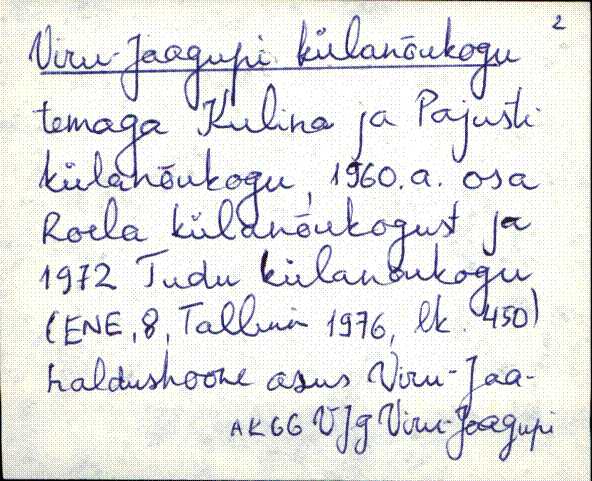 2
Viru-Jaagupi külanõukogu
temaga Kulina ja Pajusti
külanõukogu, 1960.a. osa
Roela külanõukogust ja
1972 Tudu külanõukogu
(ENE, 8, Tallinn 1976, lk. 450)
haldushoone asus Viru-Jaa-
AKGG VJg Viru-Jaagupi